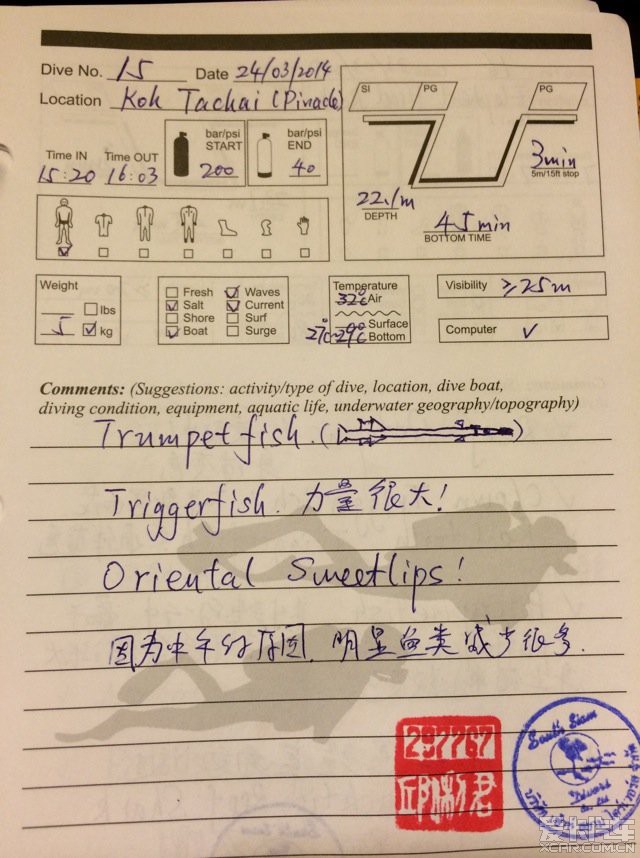 Dive No. 15 Date 24/03/2014
Location Koh Tachai (Pinacle)
SI PG PG
Time IN Time OUT
15:20 16:03
bar/psi START 200
bar/psi END 40
3min
5m/15ft stop
22.1m
DEPTH
45min
BOTTOM TIME
Weight
lbs
5 kg
Fresh Waves
Salt Current
Shore Surf
Boat Surge
Temperature
32℃ Air
27℃-29℃ Surface
Bottom
Visibility ≥25m
Computer √
Comments: (Suggestions: activity/type of dive, location, dive boat,
diving condition, equipment, aquatic life, underwater geography/topography)
Trumpetfish. ( )
Triggerfish. 力量很大!
Oriental Sweetlips!
因为中午的原因, 明显鱼类减少很多.
297767
South Siam
Divers
Co.,Ltd
爱卡汽车
XCAR.COM.CN